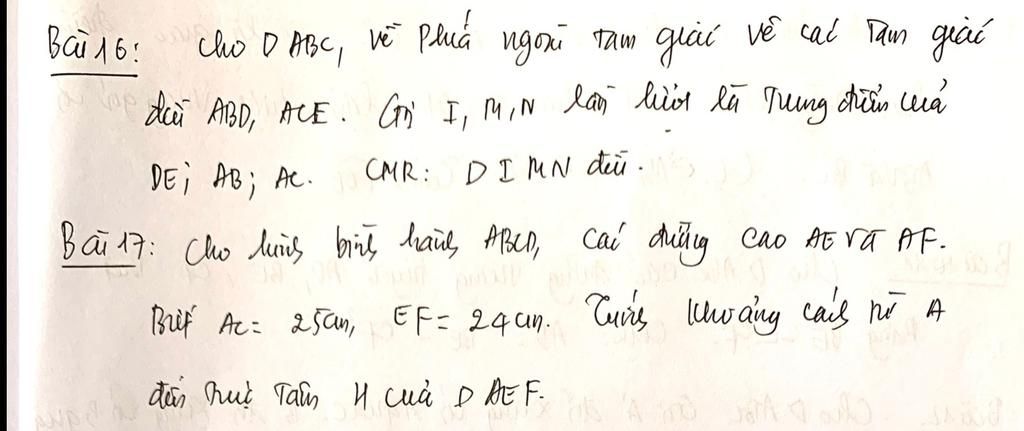 Bài 16: Cho Δ ABC, về phía ngoài tam giác vẽ các tam giác
đều ABD, ACE. Gọi I, M, N lần lượt là trung điểm của
DE; AB; AC. CMR: Δ IMN đều.
Bài 17: Cho hình bình hành ABCD, các đường cao AE và AF.
Biết AC = 25cm, EF = 24cm. Tính khoảng cách từ A
đến trực tâm H của Δ AEF.